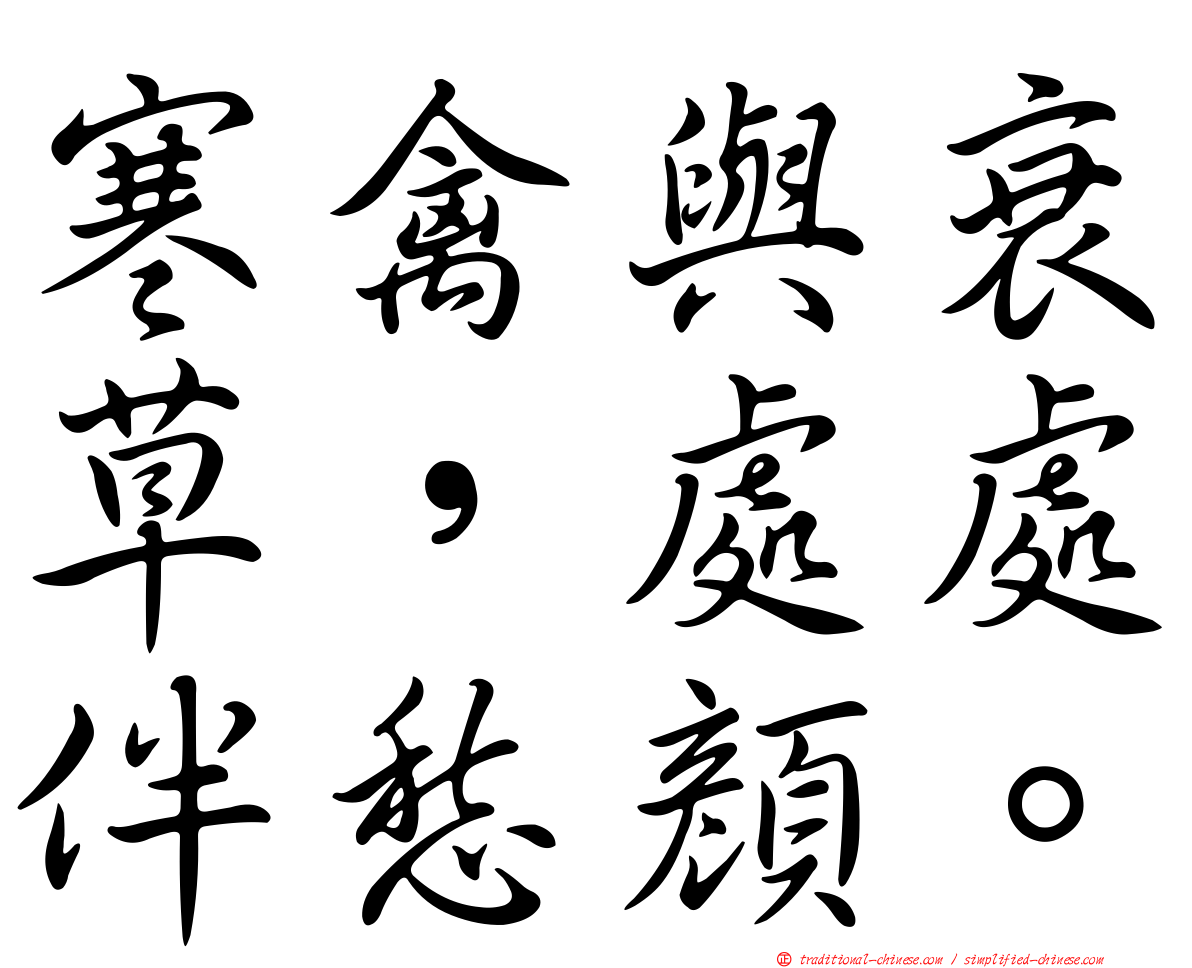 寒禽與衰
草，處處
伴愁顏。
正 traditional-chinese.com / simplified-chinese.com